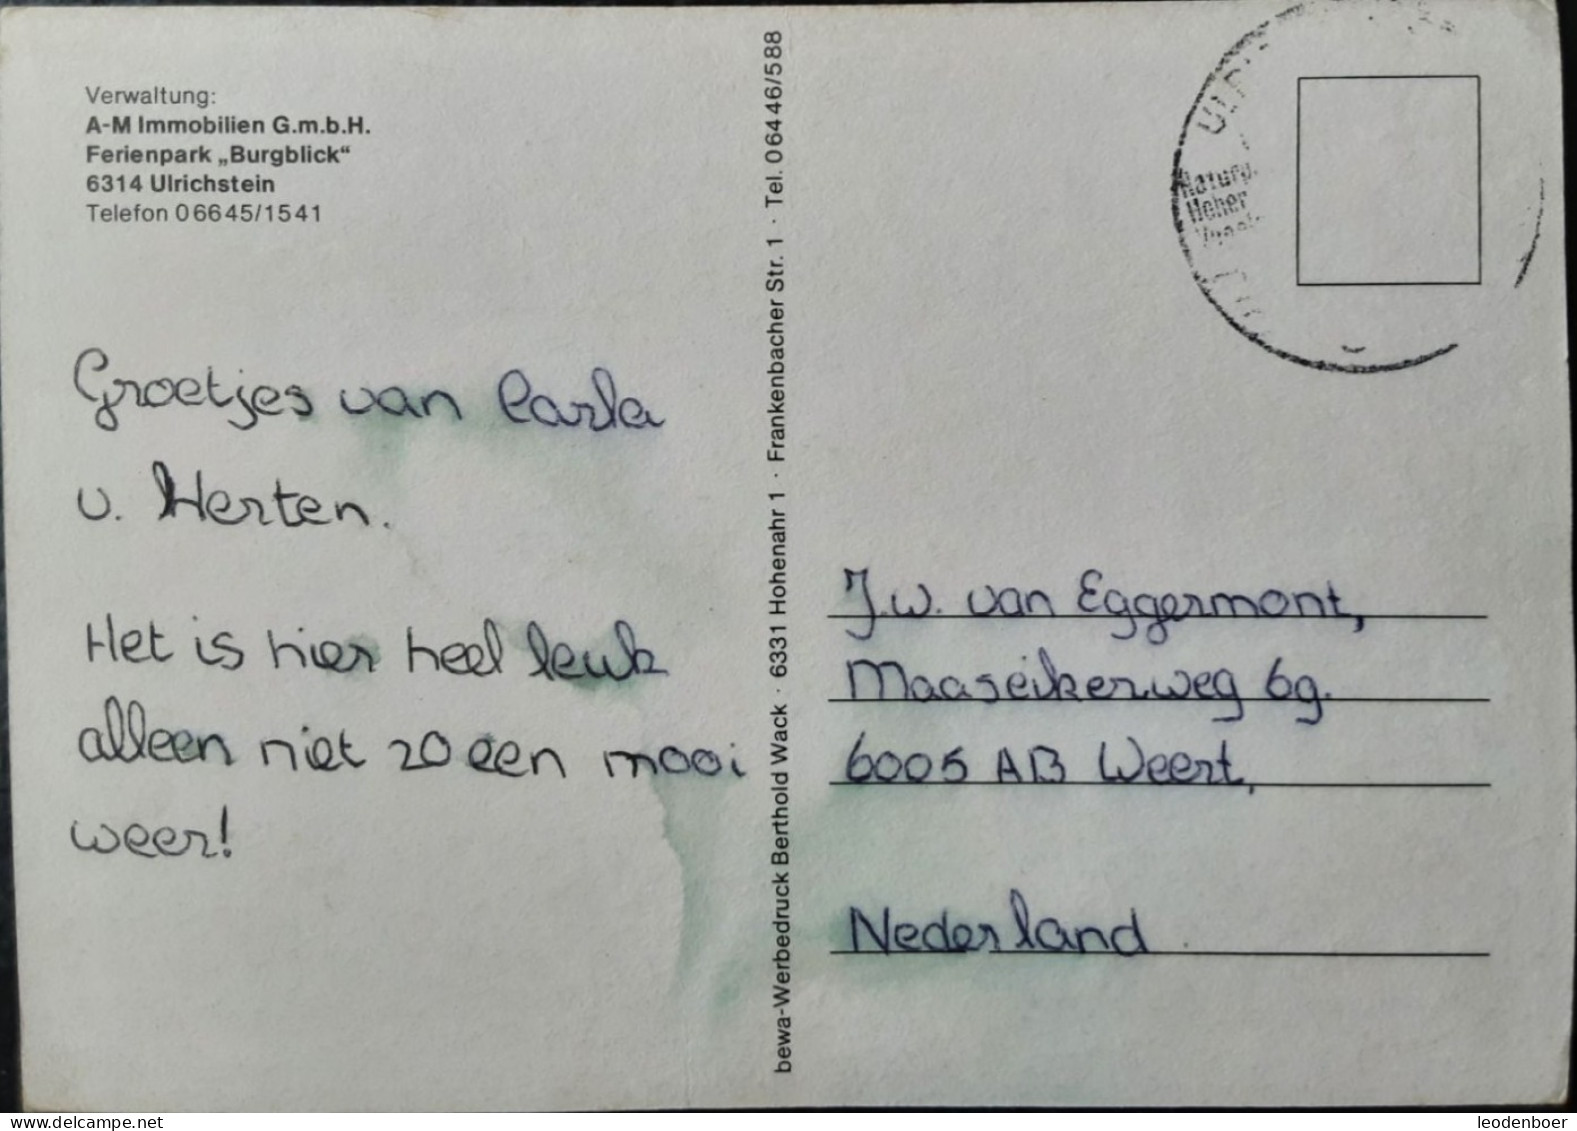 Verwaltung:
A-M Immobilien G.m.b.H.
Ferienpark „Burgblick“
6314 Ulrichstein
Telefon 06645/1541
Groetjes van Carla
v. Herten.
Het is hier heel leuk
alleen niet zo een mooi
weer!
bewa-Werbedruck Berthold Wack · 6331 Hohenahr 1 · Frankenbacher Str. 1 · Tel. 06446/588
Naturp.
Hoher
J.W. van Eggermont,
Maaseikerweg 6g.
6005 AB Weert,
Nederland
www.delcampe.net
leodenboer